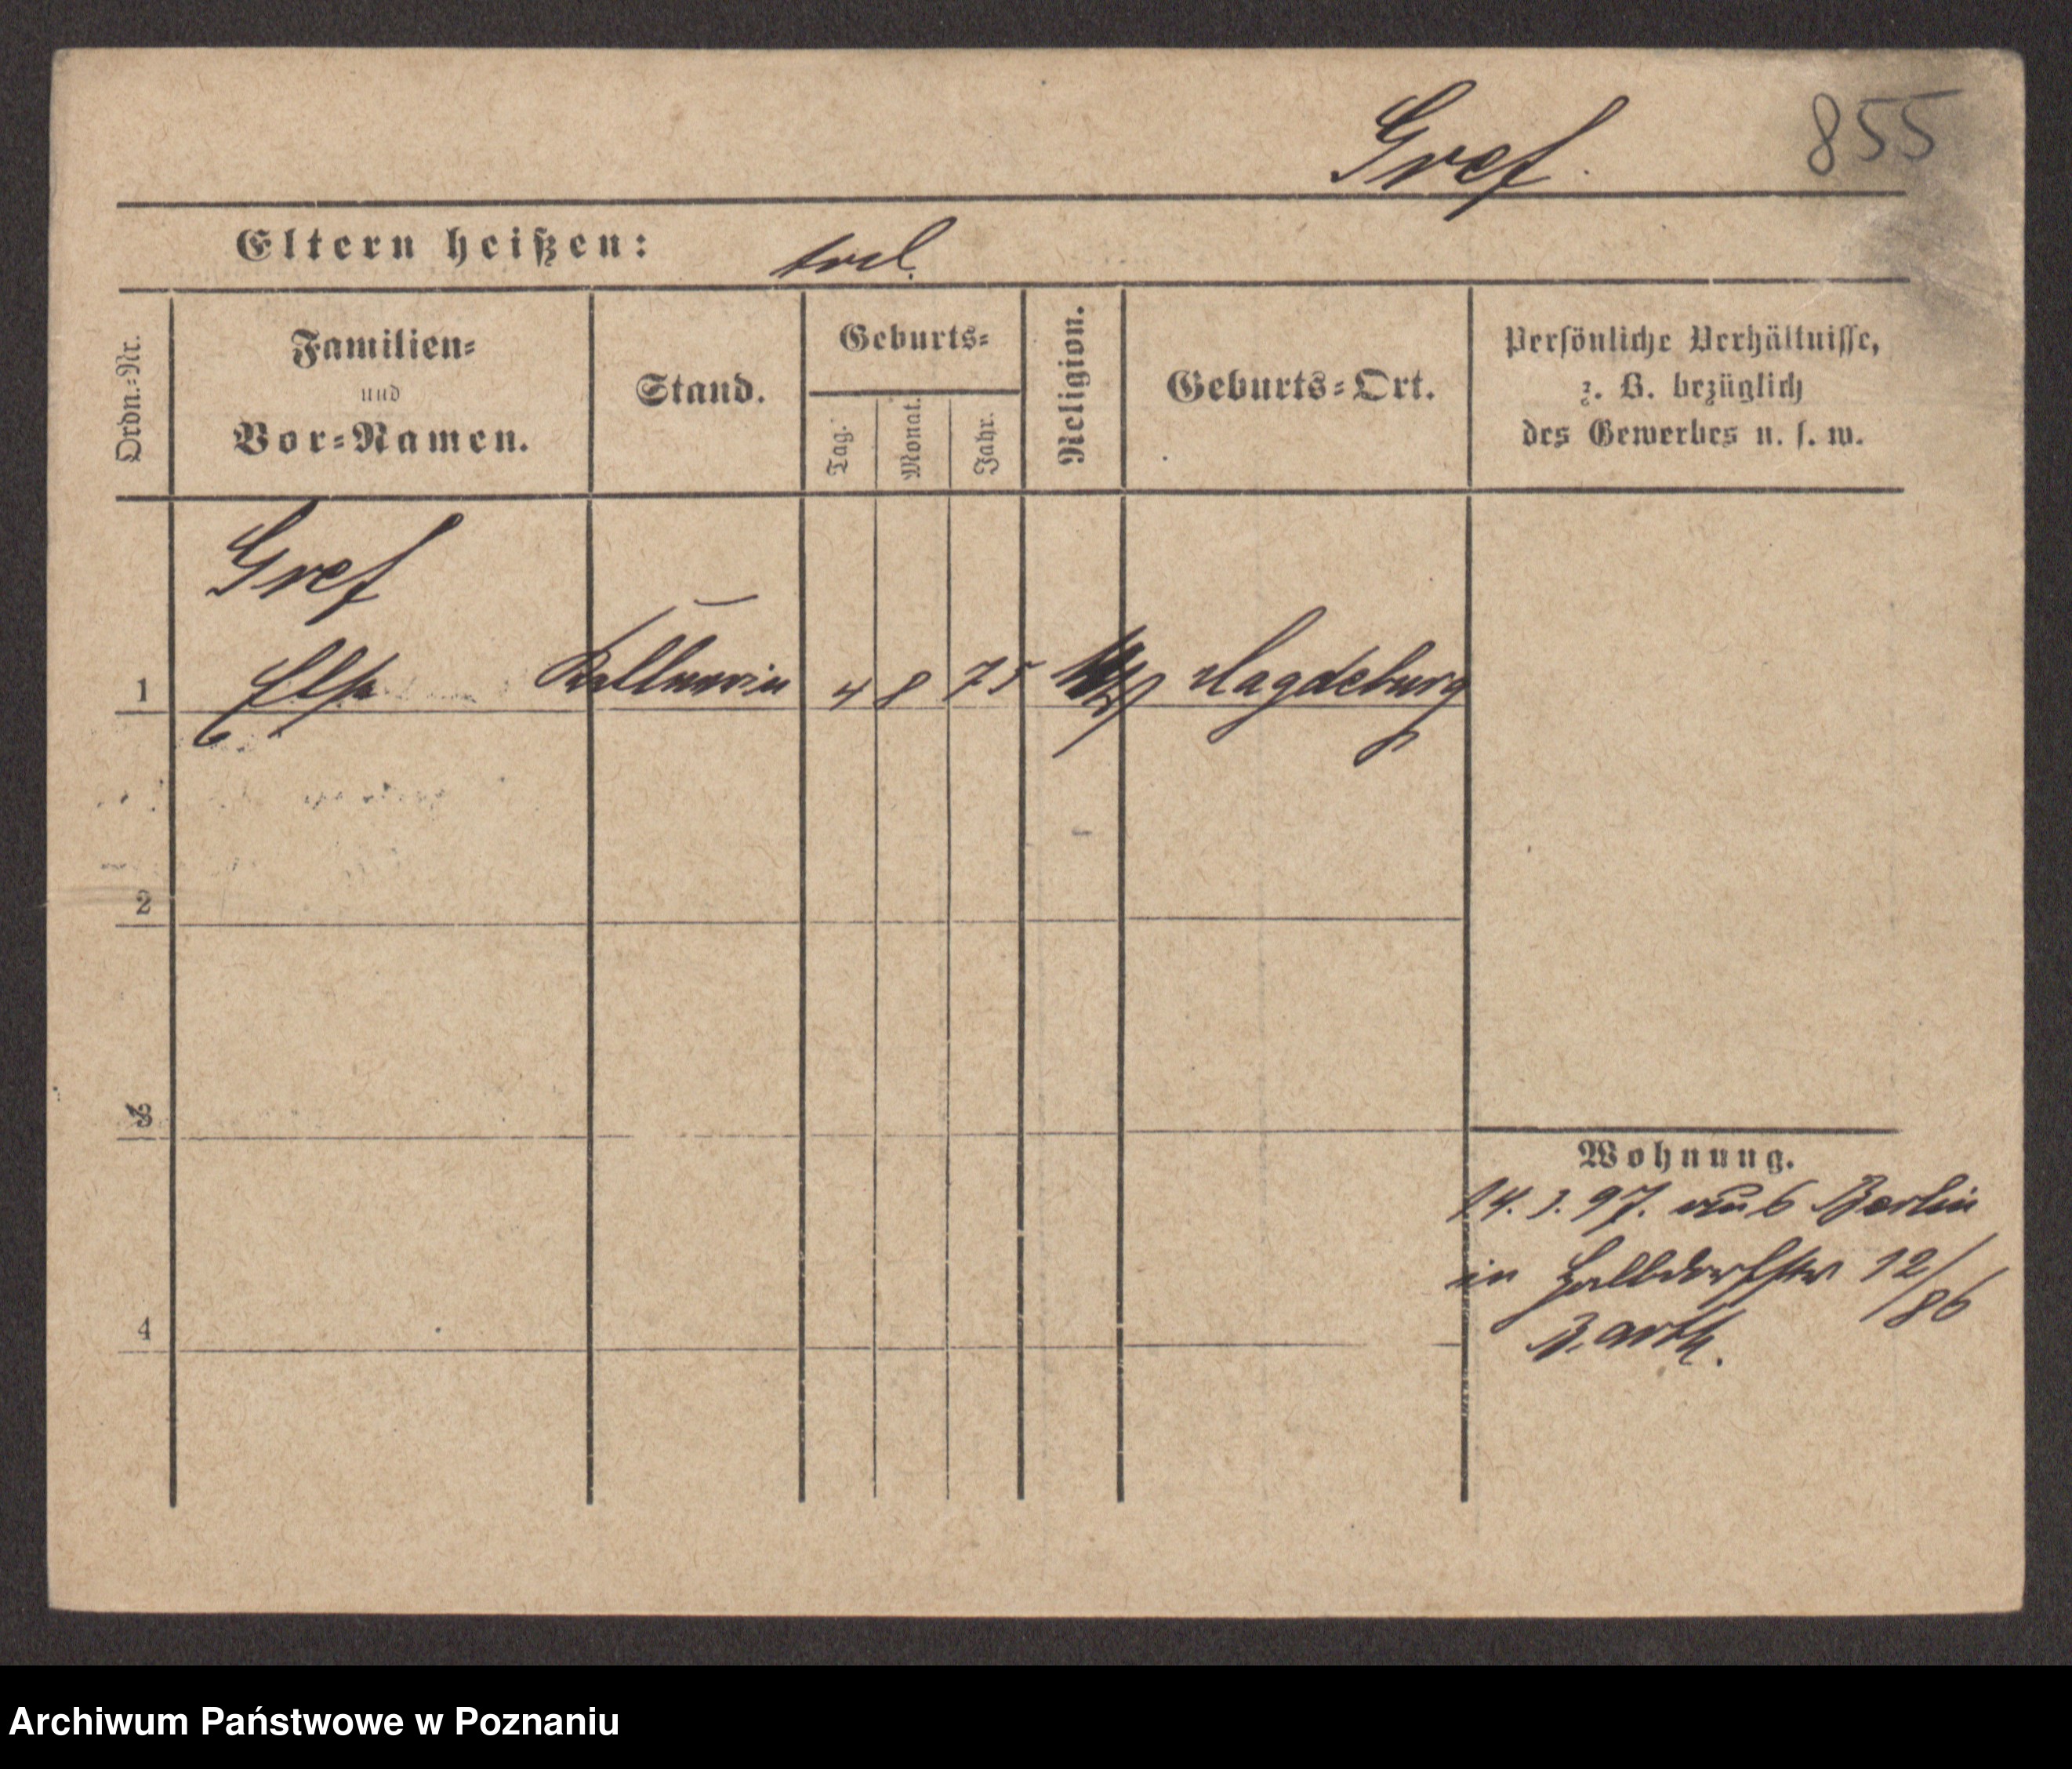 Gref.
855
Eltern heißen:
Ordn.-Nr.
Familien-
und
Vor-Namen.
Stand.
Geburts-
Tag.
Monat.
Jahr.
Religion.
Geburts-Ort.
Persönliche Verhältnisse,
z. B. bezüglich
des Gewerbes u. s. w.
Gref
1 Else Kellnerin 4 8 75 Magdeburg
2
3
4
Wohnung.
14. 3. 97. aus Berlin
in Halbdorfstr 12/86
Barth.
Archiwum Państwowe w Poznaniu